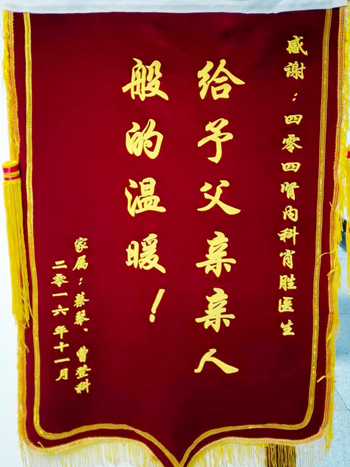 感谢：四零四肾内科肖胜医生
给予父亲亲人
般的温暖！
家属：蔡琴、曾登科
二零一六年十一月